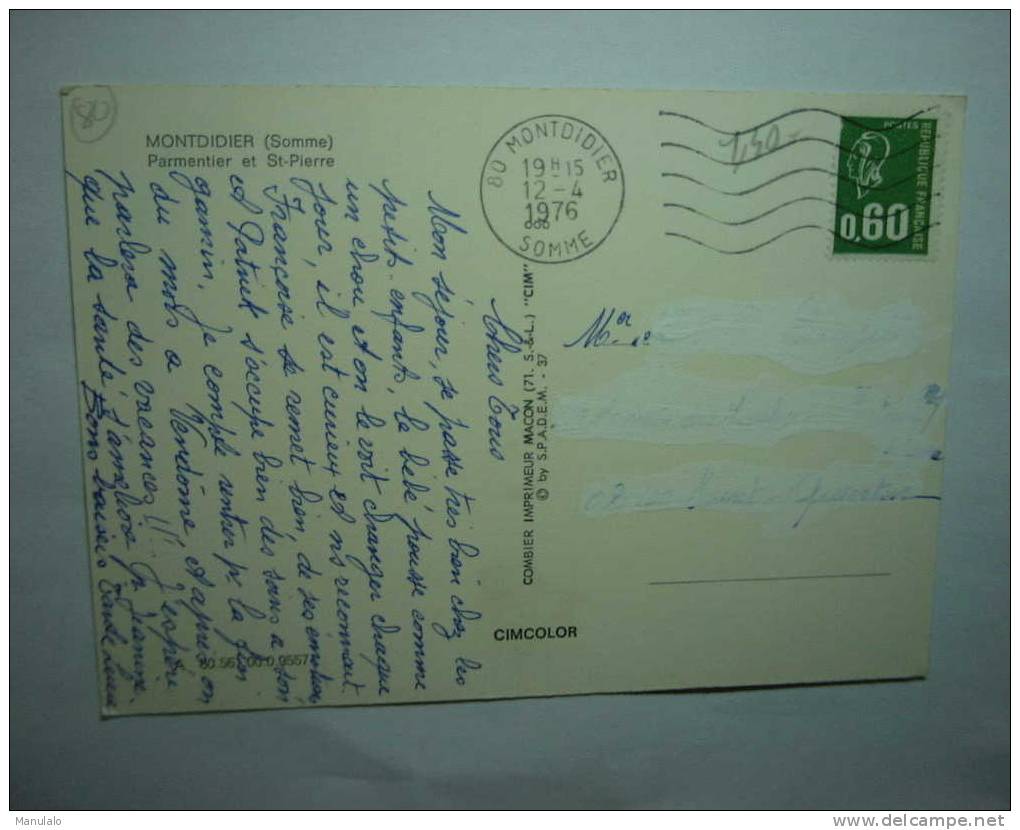 MONTDIDIER (Somme)
Parmentier et St-Pierre
80 MONTDIDIER
19 H 15
12 - 4
1976
SOMME
1,50
POSTES
REPUBLIQUE FRANÇAISE
0,60
Chers Tous
Mon séjour, se passe très bien chez les
petits enfants, le bébé pousse comme
un chou et on le voit changer chaque
jour, il est curieux et ns reconnait.
Françoise se remet bien, de ses émotions
et Patrick s'occupe bien des soins a son
gamin. Je compte rentrer pr la fin
du mois a Vendôme, et après on
parlera des vacances!! J'espère
que la santé s'améliore pr
Bons baisers
COMBIER IMPRIMEUR MACON (71. S.-&-L.) "CIM"
© by S.P.A.D.E.M. - 37
Mer
CIMCOLOR
Manulalo
delcampe.net